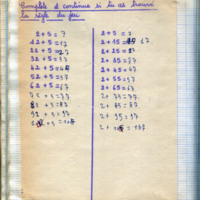 Complète et continue si tu as trouvé
la règle du jeu
2 + 5 = 7
12 + 5 = 17
22 + 5 = 27
32 + 5 = 37
42 + 5 = 47
52 + 5 = 57
62 + 5 = 67
72 + 5 = 77
82 + 5 = 87
92 + 5 = 97
102 + 5 = 107
2 + 5 = 7
2 + 15 = 17
2 + 25 = 27
2 + 35 = 37
2 + 45 = 47
2 + 55 = 57
2 + 65 = 67
2 + 75 = 77
2 + 85 = 87
2 + 95 = 97
2 + 105 = 107